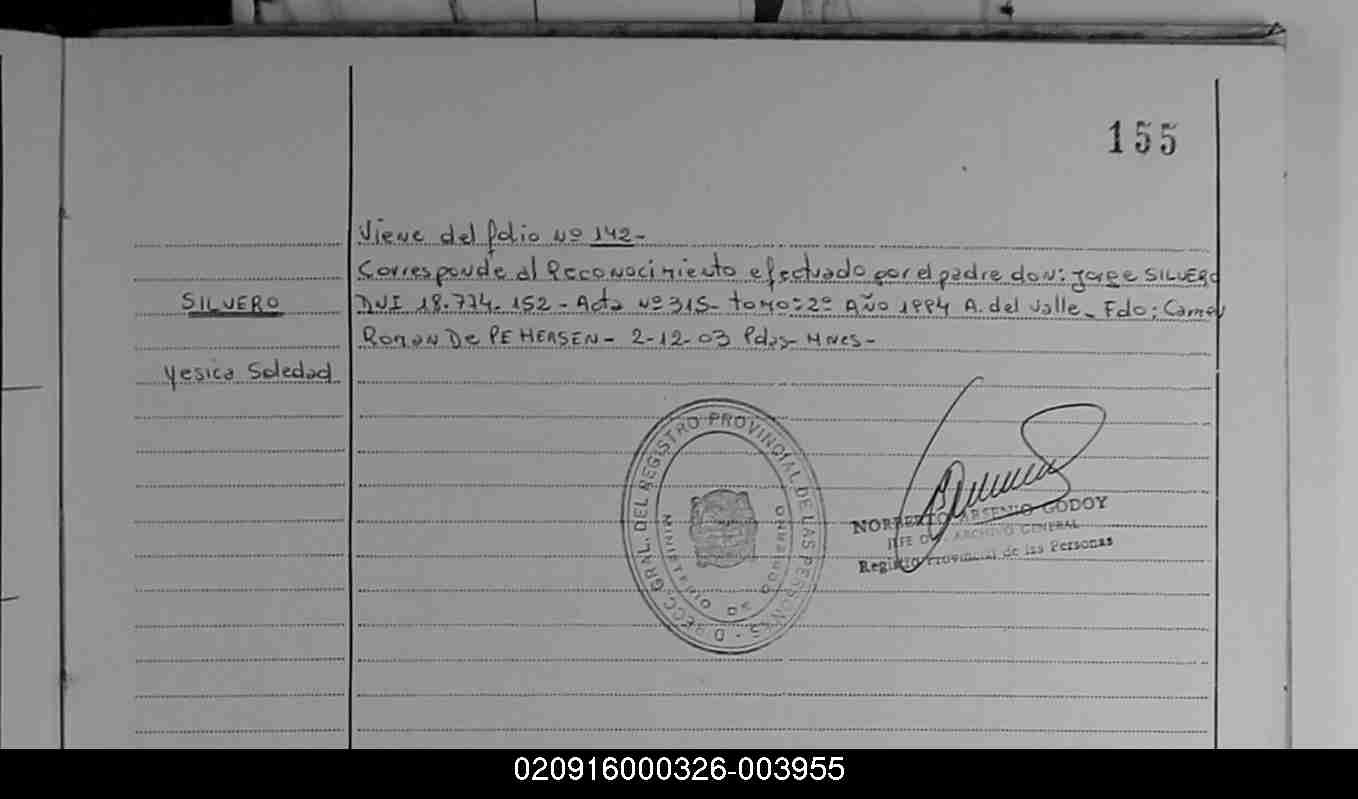 155
Viene del folio Nº 142-
Corresponde al Reconocimiento efectuado por el padre don: Jorge SILVERO
SILVERO
DNI 18.774.152 - Acta Nº 315- tomo: 2º Año 1994 A. del Valle- Fdo: Carmen
Roman De PETTERSEN - 2-12-03 Pdas- Mnes-
Yesica Soledad
DIRECC. GRAL. DEL REGISTRO PROVINCIAL DE LAS PERSONAS -
MINISTERIO DE GOBIERNO
NORBERTO ARSENIO GODOY
JEFE DEL ARCHIVO GENERAL
Registro Provincial de las Personas
020916000326-003955